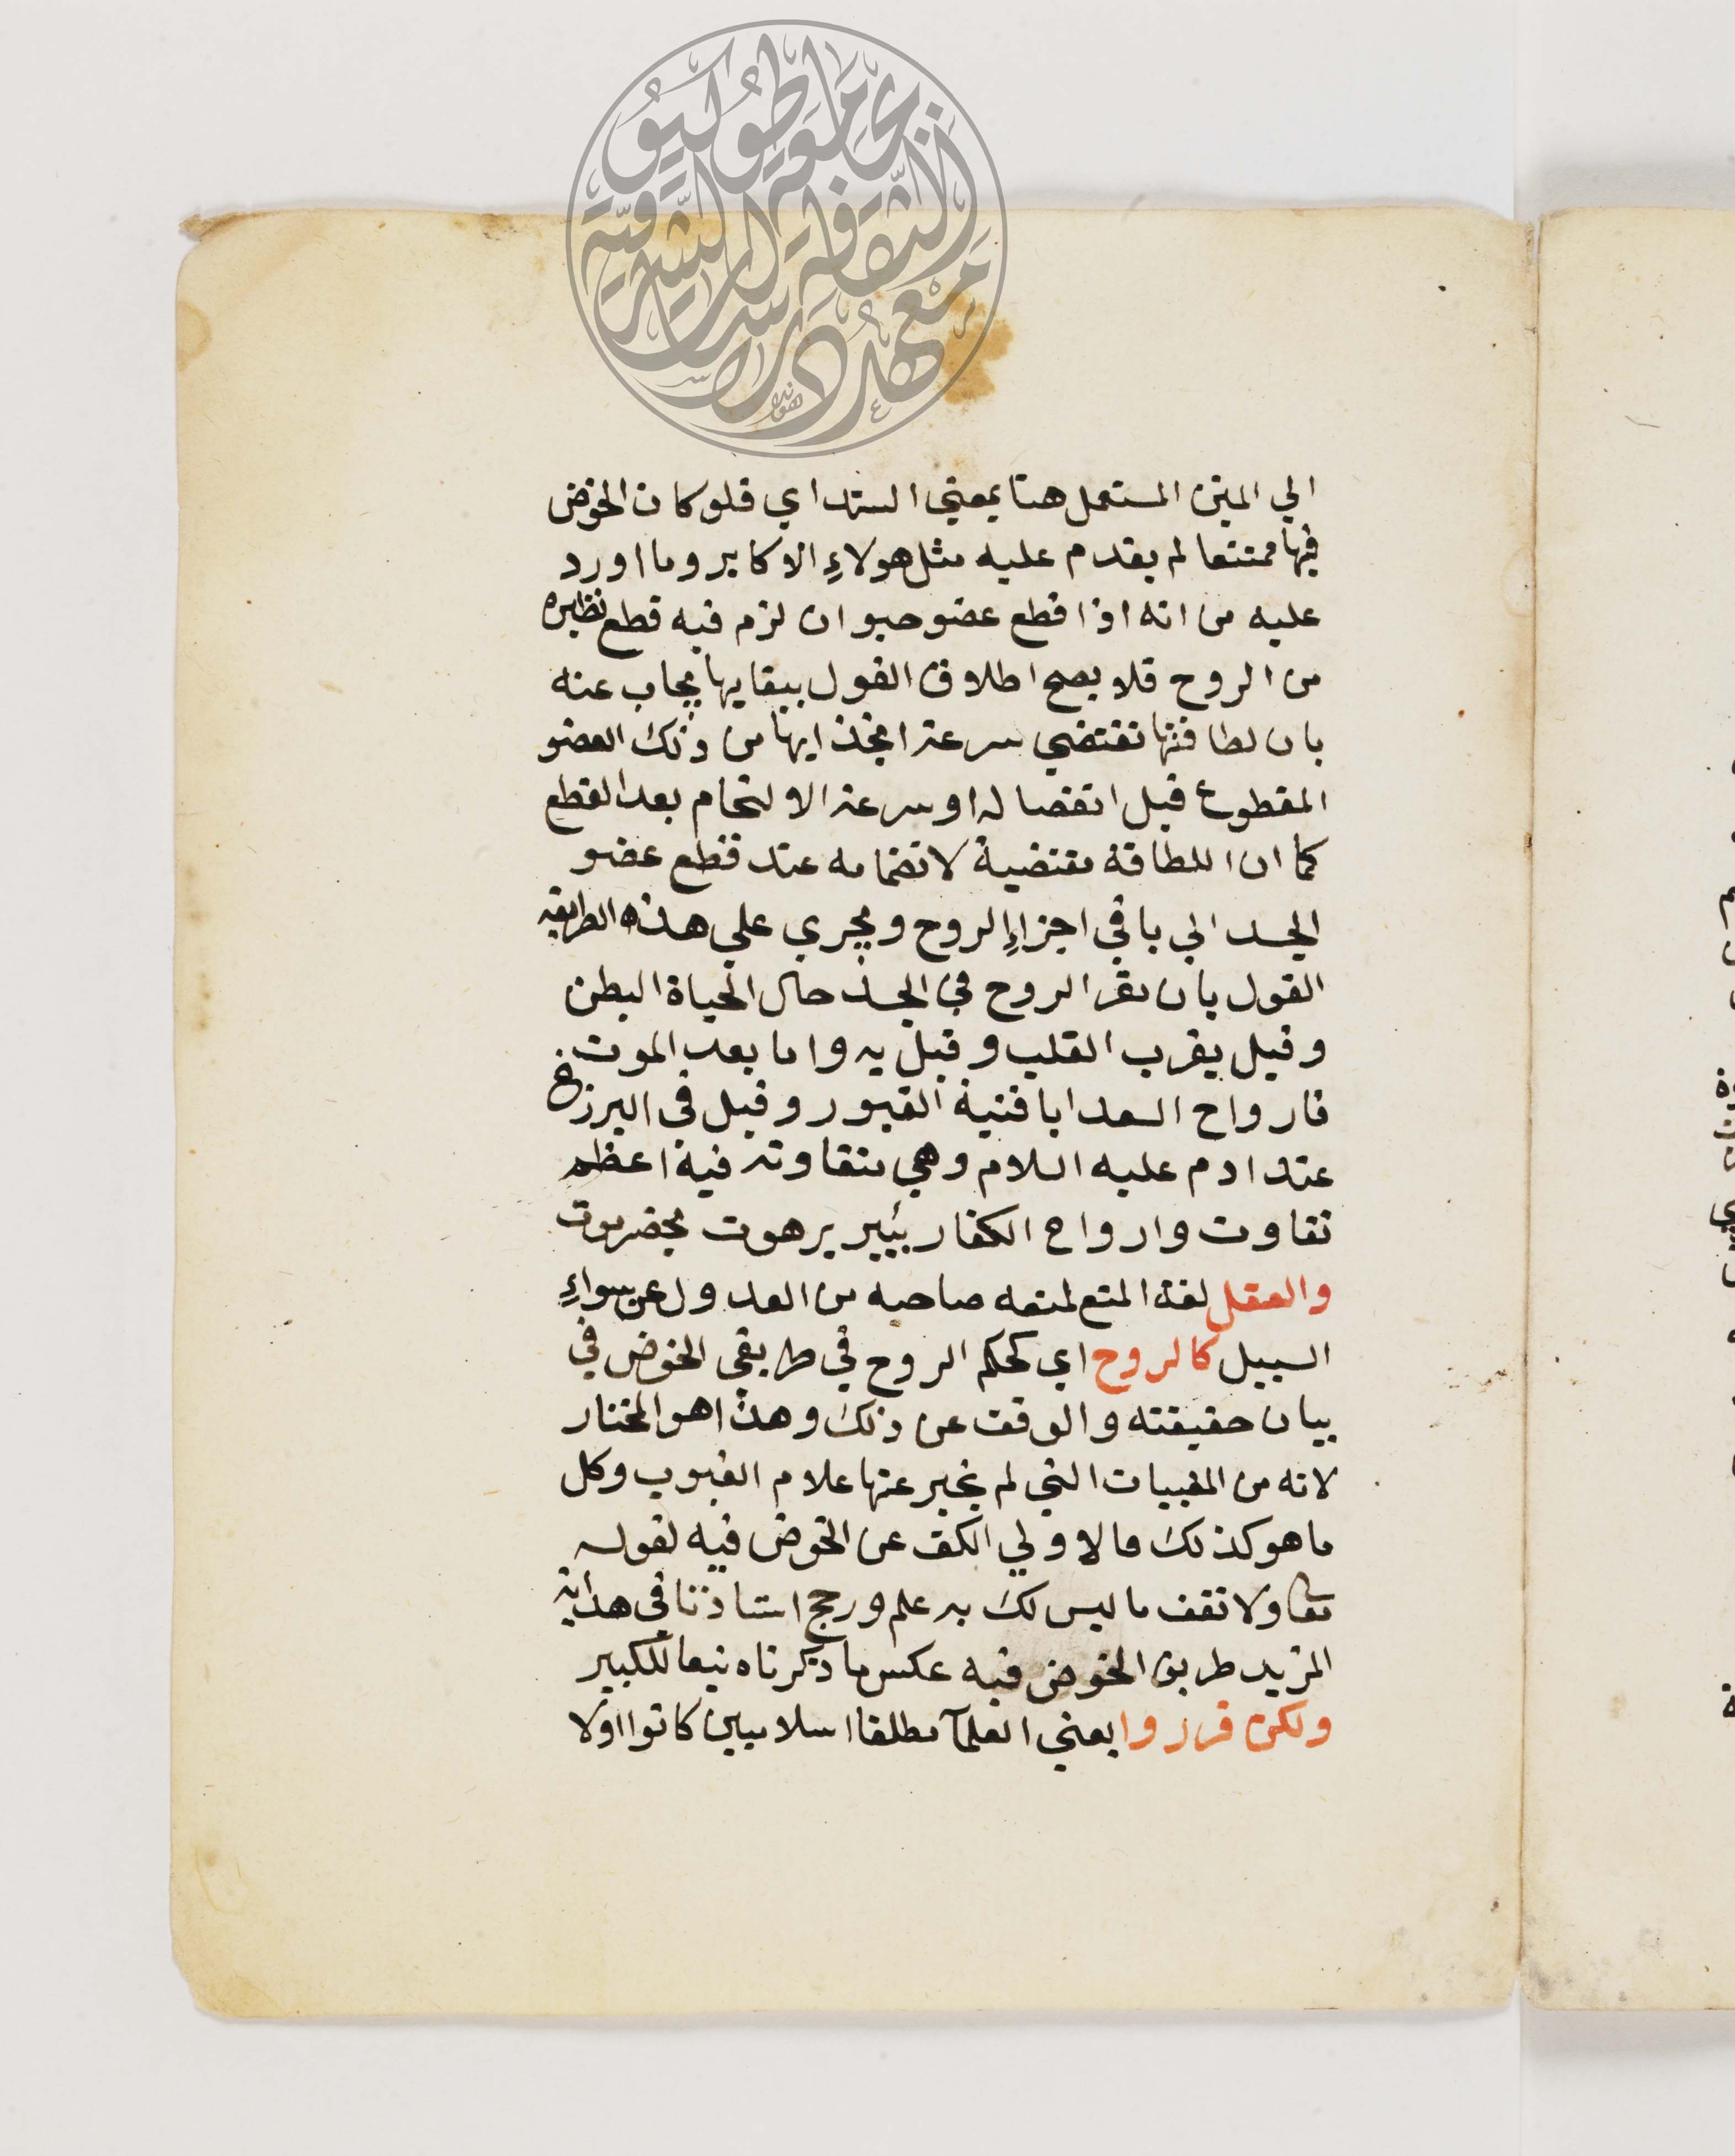 الي المتن المستعمل هنا بمعني السند اي فلو كان الخوض
فيها ممتنعا لم يقدم عليه مثل هولاءِ الاكابر وما اورد
عليه من انه اذا قطع عضو حيوان لزم فيه قطع نظيره
من الروح فلا يصح اطلاق القول ببقايها يجاب عنه
بان لطافتها تقتضي سرعة انجذابها من ذلك العضو
المقطوع قبل انفصاله او سرعة الالتحام بعد القطع
كما ان اللطافة مقتضية لانضمامه عند قطع عضو
الجسد الي باقي اجزاءِ الروح ويجري علي هذه الطريقة
القول بان مقر الروح في الجسد حال الحياة البطن
وقيل بقرب القلب وقيل به واما بعد الموت
فارواح السعدا بافنية القبور وقيل في البرزخ
عند ادم عليه السلام وهي متفاوتة فيه اعظم
تفاوت وارواح الكفار ببئير برهوت بحضرموت
والعقل لغة المنع لمنعه صاحبه من العدول عن سواءِ
السبيل كالروح اي كحكم الروح في طريقي الخوض في
بيان حقيقته والوقف عن ذلك وهذا هو المختار
لانه من المغيبات التي لم يخبر عنها علام الغيوب وكل
ما هو كذلك فالاولي الكف عن الخوض فيه لقوله
تعالي ولا تقف ما ليس لك به علم ورجح استاذنا في هداية
المزيد طريق الخوض فيه عكس ما ذكرناه تبعا للكبير
ولكن قرروا يعني العلمآ مطلقا اسلاميين كانوا اولا
جامعة طوكيو
معهد دراسات الثقافة الشرقية